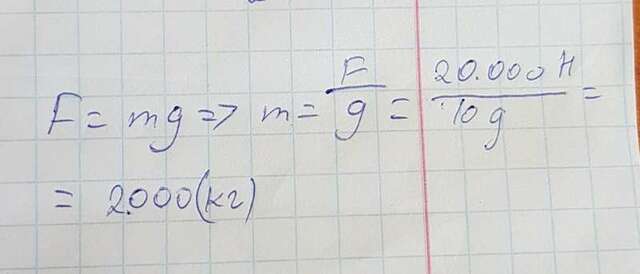 F = mg => m = F/g = 20.000 Н/10 g =
= 2.000 (кг)